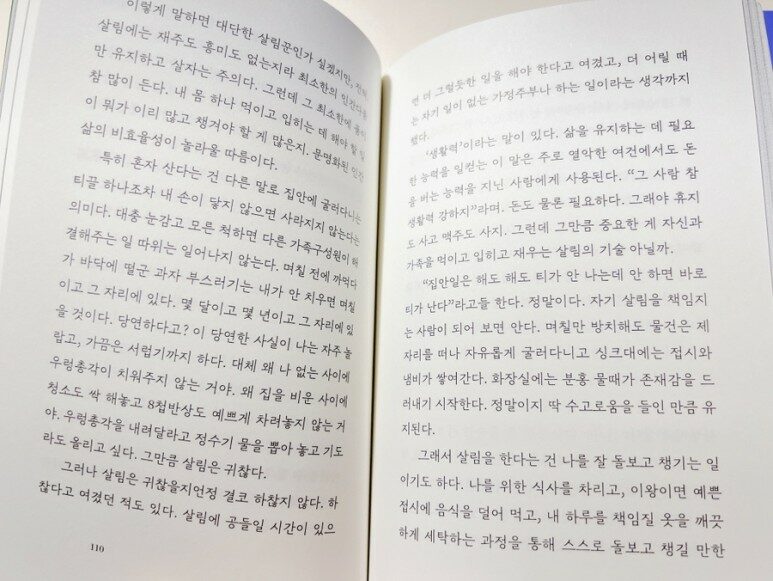 이렇게 말하면 대단한 살림꾼인가 싶겠지만, 전혀
살림에는 재주도 흥미도 없는지라 최소한의 인간다움
만 유지하고 살자는 주의다. 그런데 그 최소한에 품이
참 많이 든다. 내 몸 하나 먹이고 입히는 데 해야 할 일
이 뭐가 이리 많고 챙겨야 할 게 많은지. 문명화된 인간
삶의 비효율성이 놀라울 따름이다.
특히 혼자 산다는 건 다른 말로 집안에 굴러다니는
티끌 하나조차 내 손이 닿지 않으면 사라지지 않는다는
의미다. 대충 눈감고 모른 척하면 다른 가족구성원이 해
결해주는 일 따위는 일어나지 않는다. 며칠 전에 까먹다
가 바닥에 떨군 과자 부스러기는 내가 안 치우면 며칠
이고 그 자리에 있다. 몇 달이고 몇 년이고 그 자리에 있
을 것이다. 당연하다고? 이 당연한 사실이 나는 자주 놀
랍고, 가끔은 서럽기까지 하다. 대체 왜 나 없는 사이에
우렁총각이 치워주지 않는 거야. 왜 집을 비운 사이에
청소도 싹 해놓고 8첩반상도 예쁘게 차려놓지 않는 거
야. 우렁총각을 내려달라고 정수기 물을 뽑아 놓고 기도
라도 올리고 싶다. 그만큼 살림은 귀찮다.
그러나 살림은 귀찮을지언정 결코 하찮지 않다. 하
찮다고 여겼던 적도 있다. 살림에 공들일 시간이 있으
110
면 더 그럴듯한 일을 해야 한다고 여겼고, 더 어릴 때
는 자기 일이 없는 가정주부나 하는 일이라는 생각까지
했다.
‘생활력’이라는 말이 있다. 삶을 유지하는 데 필요
한 능력을 일컫는 이 말은 주로 열악한 여건에서도 돈
을 버는 능력을 지닌 사람에게 사용된다. “그 사람 참
생활력 강하지”라며. 돈도 물론 필요하다. 그래야 휴지
도 사고 맥주도 사지. 그런데 그만큼 중요한 게 자신과
가족을 먹이고 입히고 재우는 살림의 기술 아닐까.
“집안일은 해도 해도 티가 안 나는데 안 하면 바로
티가 난다”라고들 한다. 정말이다. 자기 살림을 책임지
는 사람이 되어 보면 안다. 며칠만 방치해도 물건은 제
자리를 떠나 자유롭게 굴러다니고 싱크대에는 접시와
냄비가 쌓여간다. 화장실에는 분홍 물때가 존재감을 드
러내기 시작한다. 정말이지 딱 수고로움을 들인 만큼 유
지된다.
그래서 살림을 한다는 건 나를 잘 돌보고 챙기는 일
이기도 하다. 나를 위한 식사를 차리고, 이왕이면 예쁜
접시에 음식을 덜어 먹고, 내 하루를 책임질 옷을 깨끗
하게 세탁하는 과정을 통해 스스로 돌보고 챙길 만한